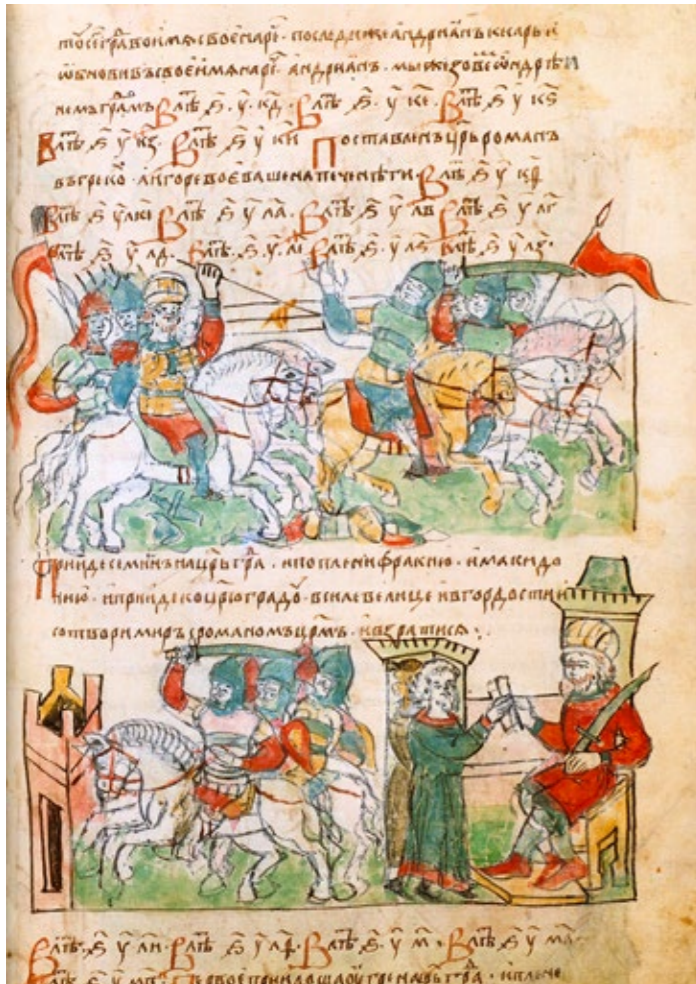 тосегра воимѧ своє наре · послѣди же андриꙗнъ кесарь и
ѡбновивъ своеимѧ наре · андриꙗнъ · мы же зовеⷨ ѡндрѣи
немъ граⷣмъ · В лⷮѣ ҂ѕ · у҃ · кд · В лⷮѣ ҂ѕ · у҃ ке · В лⷮѣ ҂ѕ у҃ кѕ
В лⷮѣ ҂ѕ у҃ кз · В лⷮѣ ҂ѕ у҃ ки Поставленъ цр҃ь романъ
въ греко · а игоре воєваше на печенѣги · В лⷮѣ ҂ѕ у҃ кѳ
В лⷮѣ ҂ѕ у҃ · В лⷮѣ ҂ѕ у҃ ла · В лⷮѣ ҂ѕ у҃ лв В лⷮѣ ҂ѕ у҃ лг
В лⷮѣ ҂ѕ у҃ лд · В лⷮѣ · ҂ѕ · у҃ · ле В лⷮѣ · ҂ѕ у҃ лѕ В лⷮѣ ҂ѕ у҃ лз ·
Прииде семиѡнъ на цр҃ьгра · и поплени фракию · и макидо
нию · и прииде ко цр҃югрⷣаѹ · в силе велице и в гордости и
сотвори миръ с романомъ цр҃мъ · и възратисѧ ·
В лⷮѣ · ҂ѕ у҃ ли · В лⷮѣ ҂ѕ у҃ лѳ · В лⷮѣ ҂ѕ · у҃ м · В лⷮѣ ҂ѕ у҃ ма
В лⷮѣ ҂ѕ у҃ мв · Первое приидоша оугре на цр҃ьгра · и плене